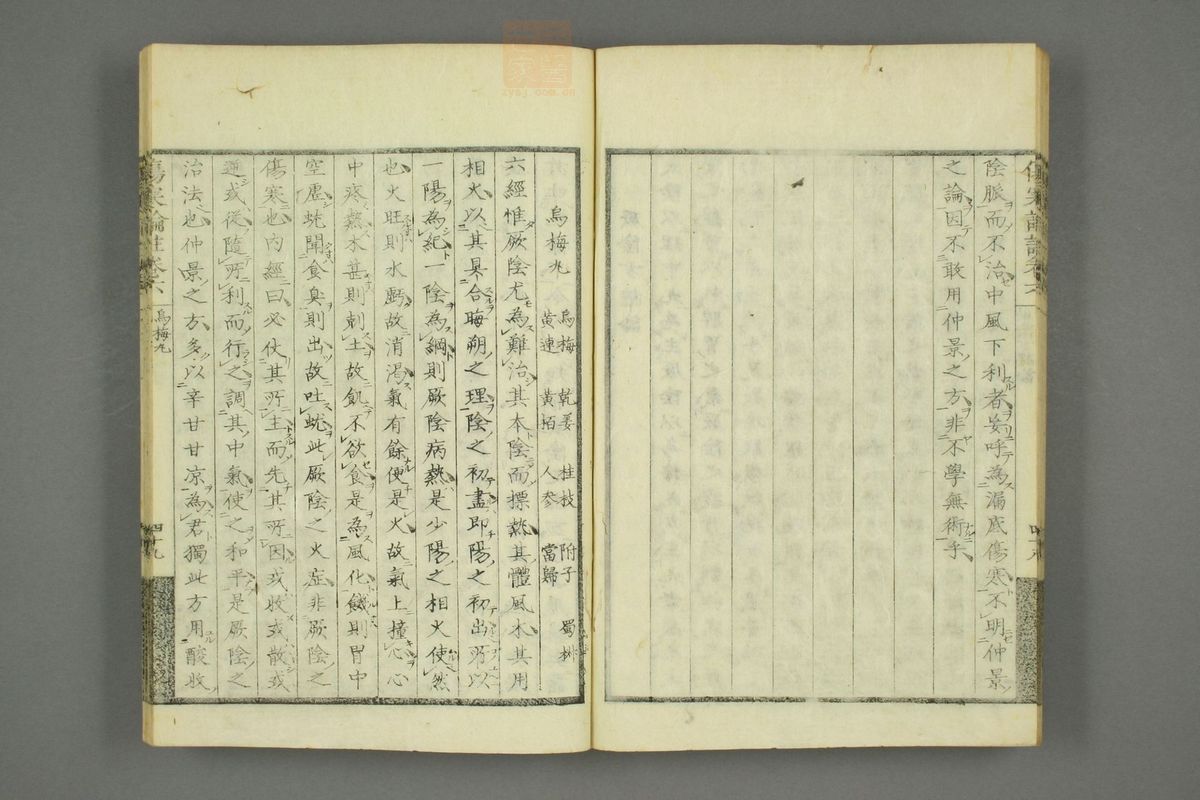 陰脈而不治中風下利者妄呼為漏底傷寒不明仲景
之論因不敢用仲景之方非不學無術乎
傷寒論註卷六
烏梅丸
四十九
烏梅丸 烏梅 乾姜 桂枝 附子 蜀椒
黃連 黃栢 人參 當歸
六經惟厥陰尤為難治其本陰而標熱其體風木其用
相火以其具合晦朔之理陰之初盡即陽之初出所以
一陽為紀一陰為綱則厥陰病熱是少陽之相火使然
也火旺則水虧故消渴氣有餘便是火故氣上撞心心
中疼熱木甚則刺土故飢不欲食是為風化饑則胃中
空虛蚘聞食臭則出故吐蚘此厥陰之火症非厥陰之
傷寒也內經曰必伏其所主而先其所因或收或散或
逆或從隨所利而行之調其中氣使之和平是厥陰之
治法也仲景之方多以辛甘甘凉為君獨此方用酸收
zysj.com.cn